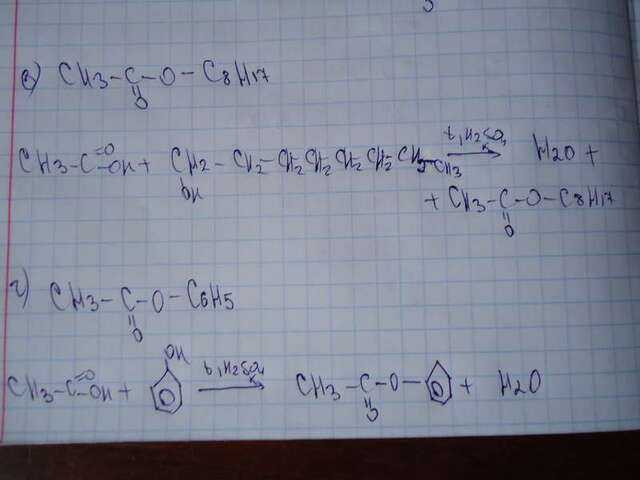 в) CH3-C-O-C8H17
=O
CH3-C=O-OH + CH2-CH2-CH2-CH2-CH2-CH2-CH2-CH3 t, H2SO4 → H2O +
OH
+ CH3-C-O-C8H17
=O
г) CH3-C-O-C6H5
=O
OH
CH3-C=O-OH + t, H2SO4 → CH3-C-O- + H2O
=O